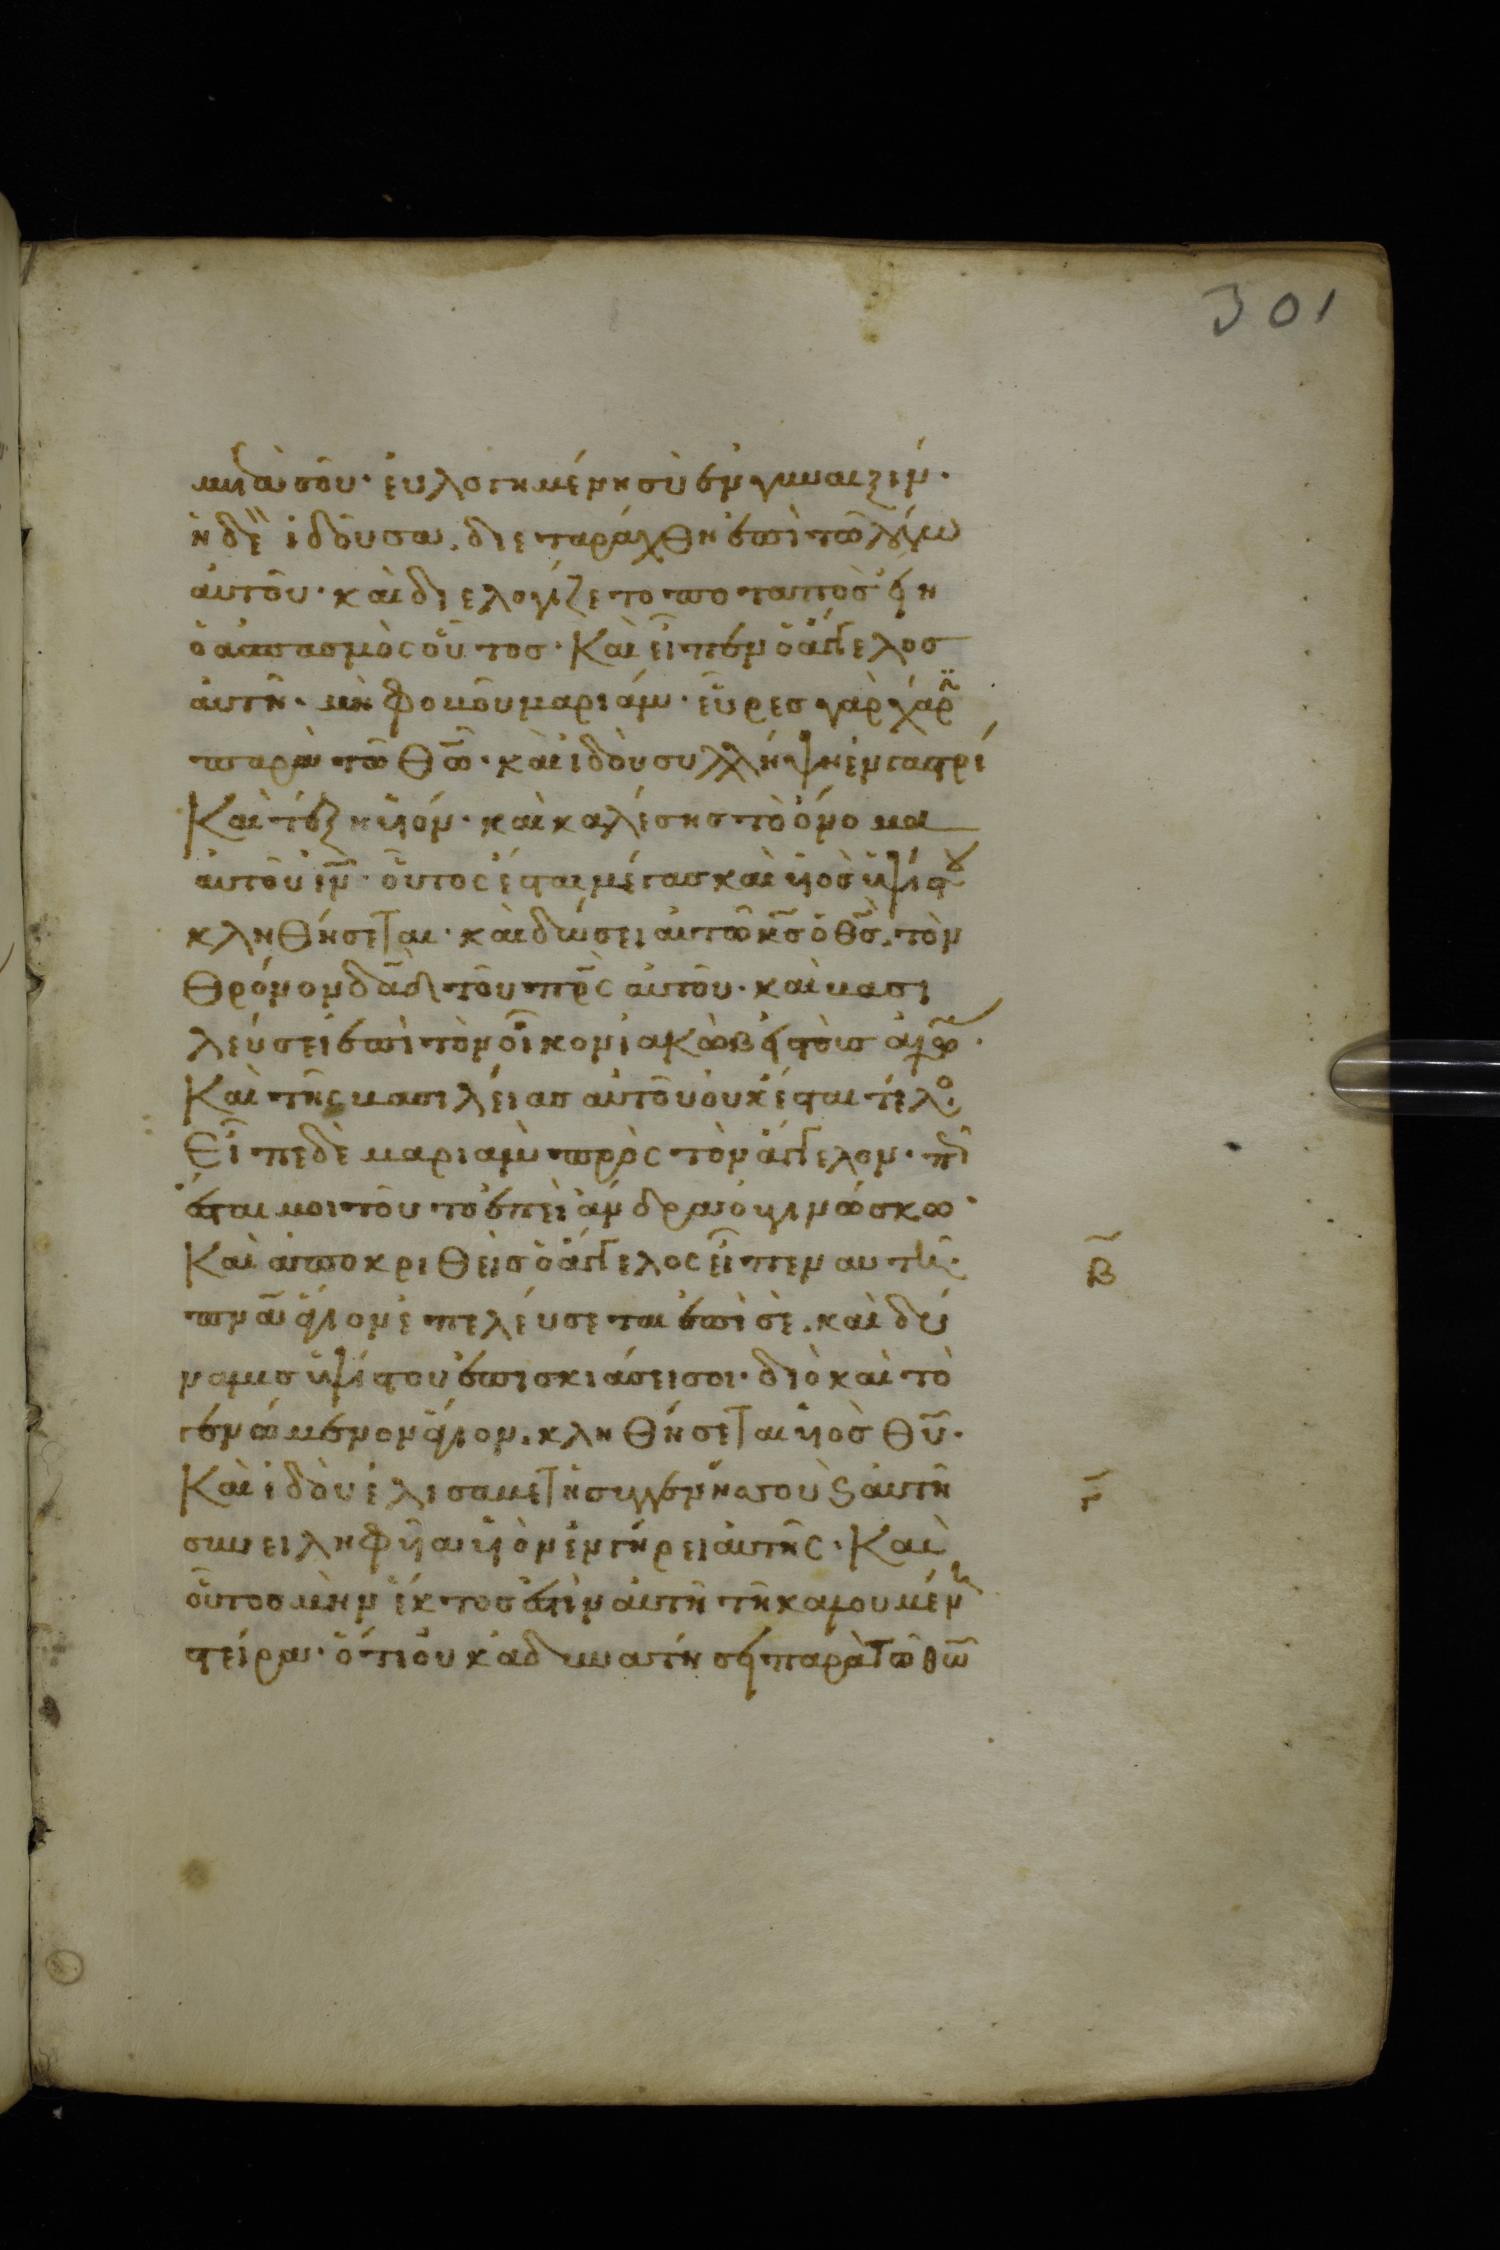 301
μετὰ σοῦ· ἐυλογημένη σὺ ἐν γυναιξίν·
ἡ δὲ ἰδοῦσα, διεταράχθη ἐπὶ τῶ λόγω
αὐτοῦ· καὶ διελογίζετο ποταπὸσ εἴη
ὁ ἀσπασμὸς οὗτοσ· Καὶ εἶπεν ὁ ἄγγελοσ
αὐτῆ· μὴ φοβοῦ μαριάμ· εὗρεσ γὰρ χάρ̃
παρὰ τῶ θ̅ω̅· καὶ ἰδοὺ συλλήψη ἐν γαστρί
Καὶ τέξη υἱόν· καὶ καλέσησ τὸ ὄνομα
αὐτοῦ ι̅ν̅· οὗτος ἔσται μέγασ καὶ υἱὸσ ὑψίστου
κληθήσεται· καὶ δώσει αὐτῶ κ̅σ̅ ὁ θ̅σ̅, τὸν
θρόνον δ̅α̅δ̅ τοῦ π̅ρ̅ς̅ αὐτοῦ· καὶ βασι
λεύσει ἐπὶ τὸν οἶκον ἰακὼβ εἰς τοὺσ αἰῶ̅·
Καὶ τῆς βασιλείασ αὐτοῦ οὐκ ἔσται τέλο·
Εἶπε δὲ μαριὰμ πρὸς τὸν ἄγγελον· π̅
ἔσται μοι τοῦτο ἐπεὶ ἄνδρα οὐ γινώσκω·
Καὶ ἀποκριθεὶσ ὁ ἄγγελος εἶπεν αυτῆ·
β̅
π̅ν̅α̅ ἅγιον ἐπελέυσεται ἐπὶ σὲ, καὶ δύ
ναμισ ὑψίστου ἐπισκιάσει σοι· διὸ καὶ τὸ
γεννώμενον ἅγιον, κληθήσεται υἱὸσ θ̅υ̅·
Καὶ ἰδοὺ ἐλισαβετ ἡ συγγενήσ σου ϗ αὐτὴ
γ̅
συνειληφῆα υἱὸν ἐν γήρει αὐτῆς· Καὶ
οὗτοσ μὴν ἕκτοσ ἐστὶν αὐτῆ τῆ καλουμέν
στείρα· ὅτι οὐκ ἀδυνατήσει παρὰ τῶ θ̅ω̅